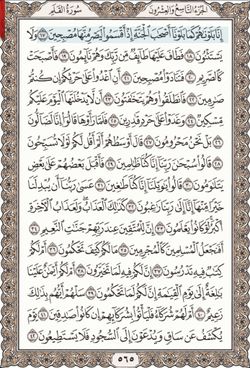 الجزء التاسع والعشرون سورة القلم
إنا بلونهم كما بلونا أصحب الجنة إذ أقسموا ليصرمنها مصبحين ١٧ ولا
يستثنون ١٨ فطاف عليها طائف من ربك وهم نائمون ١٩ فأصبحت
كالصريم ٢٠ فتنادوا مصبحين ٢١ أن اغدوا على حرثكم إن كنتم
صرمين ٢٢ فانطلقوا وهم يتخفتون ٢٣ أن لا يدخلنها اليوم عليكم
مسكين ٢٤ وغدوا على حرد قدرين ٢٥ فلما رأوها قالوا إنا لضالون
٢٦ بل نحن محرومون ٢٧ قال أوسطهم ألم أقل لكم لولا تسبحون
٢٨ قالوا سبحن ربنا إنا كنا ظلمين ٢٩ فأقبل بعضهم على بعض
يتلومون ٣٠ قالوا يويلنا إنا كنا طغين ٣١ عسى ربنا أن يبدلنا
خيرا منها إنا إلى ربنا رغبون ٣٢ كذلك العذاب ولعذاب الآخرة
أكبر لو كانوا يعلمون ٣٣ إن للمتقين عند ربهم جنت النعيم ٣٤
أفنجعل المسلمين كالمجرمين ٣٥ ما لكم كيف تحكمون ٣٦ أم لكم
كتب فيه تدرسون ٣٧ إن لكم فيه لما تخيرون ٣٨ أم لكم أيمن علينا
بلغة إلى يوم القيمة إن لكم لما تحكمون ٣٩ سلهم أيهم بذلك
زعيم ٤٠ أم لهم شركاء فليأتوا بشركائهم إن كانوا صدقين ٤١ يوم
يكشف عن ساق ويدعون إلى السجود فلا يستطيعون ٤٢
٥٦٥